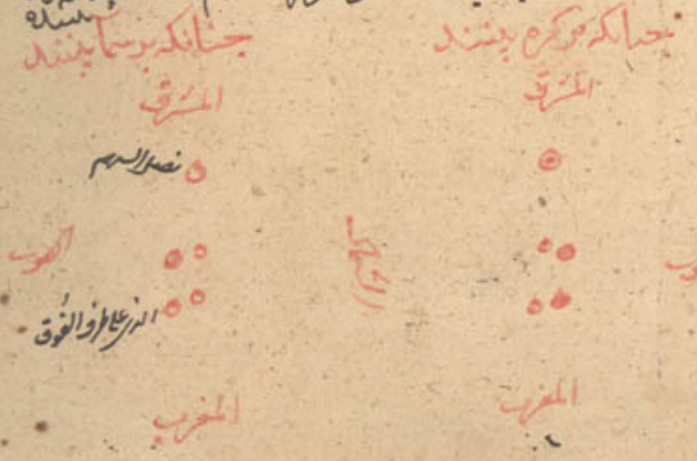 چنانکه بر کره بینند
المشرق
الشمال
المغرب
چنانکه بر سما بینند
المشرق
نصل السهم
الجنوب
الذی علی طرف الفوق
المغرب